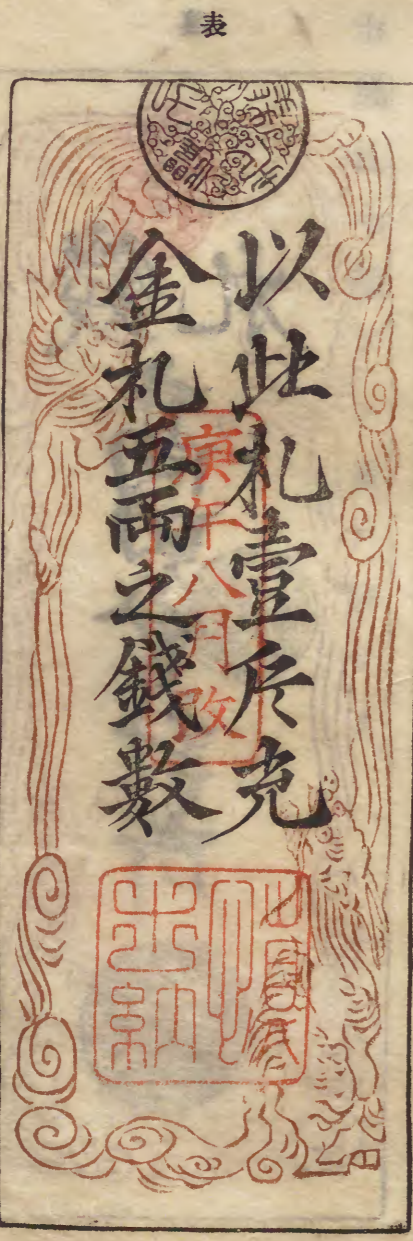 表
以此札壹片充
金札五兩之錢數
庚午八月改